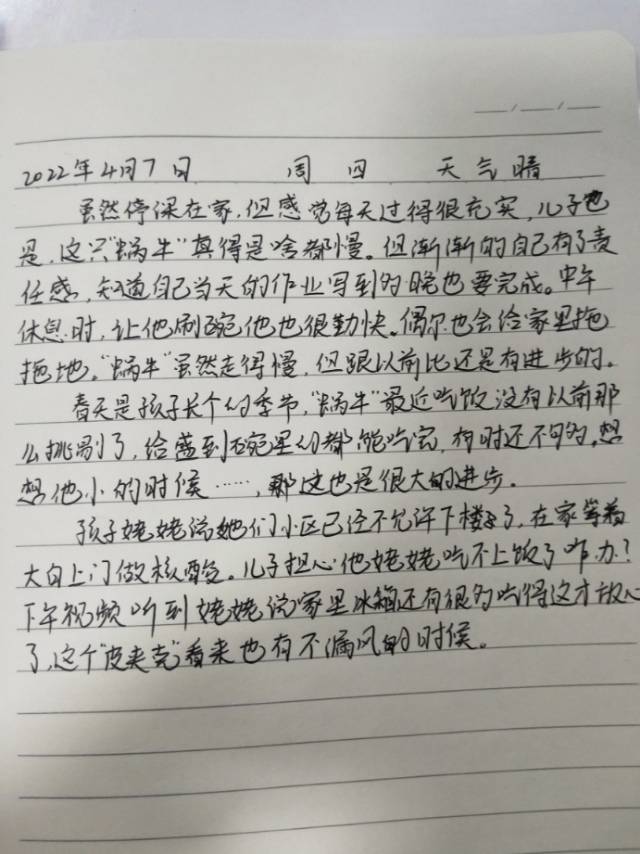 2022年4月7日 周四 天气晴
虽然停课在家，但感觉每天过得很充实，儿子也
是，这只“蜗牛”真得是啥都慢。但渐渐的自己有了责
任感，知道自己当天的作业写到多晚也要完成。中午
休息时，让他刷碗他也很勤快。偶尔也会给家里拖
拖地。“蜗牛”虽然走得慢，但跟以前比还是有进步的。
春天是孩子长个的季节，“蜗牛”最近吃饭没有以前那
么挑剔了，给盛到碗里的都能吃完，有时还不够，想
想他小的时候……，那这也是很大的进步。
孩子姥姥说她们小区已经不允许下楼了，在家等着
大白上门做核酸。儿子担心他姥姥吃不上饭了咋办？
下午视频听到姥姥说家里冰箱还有很多吃得这才放心
了，这个“皮夹克”看来也有不漏风的时候。